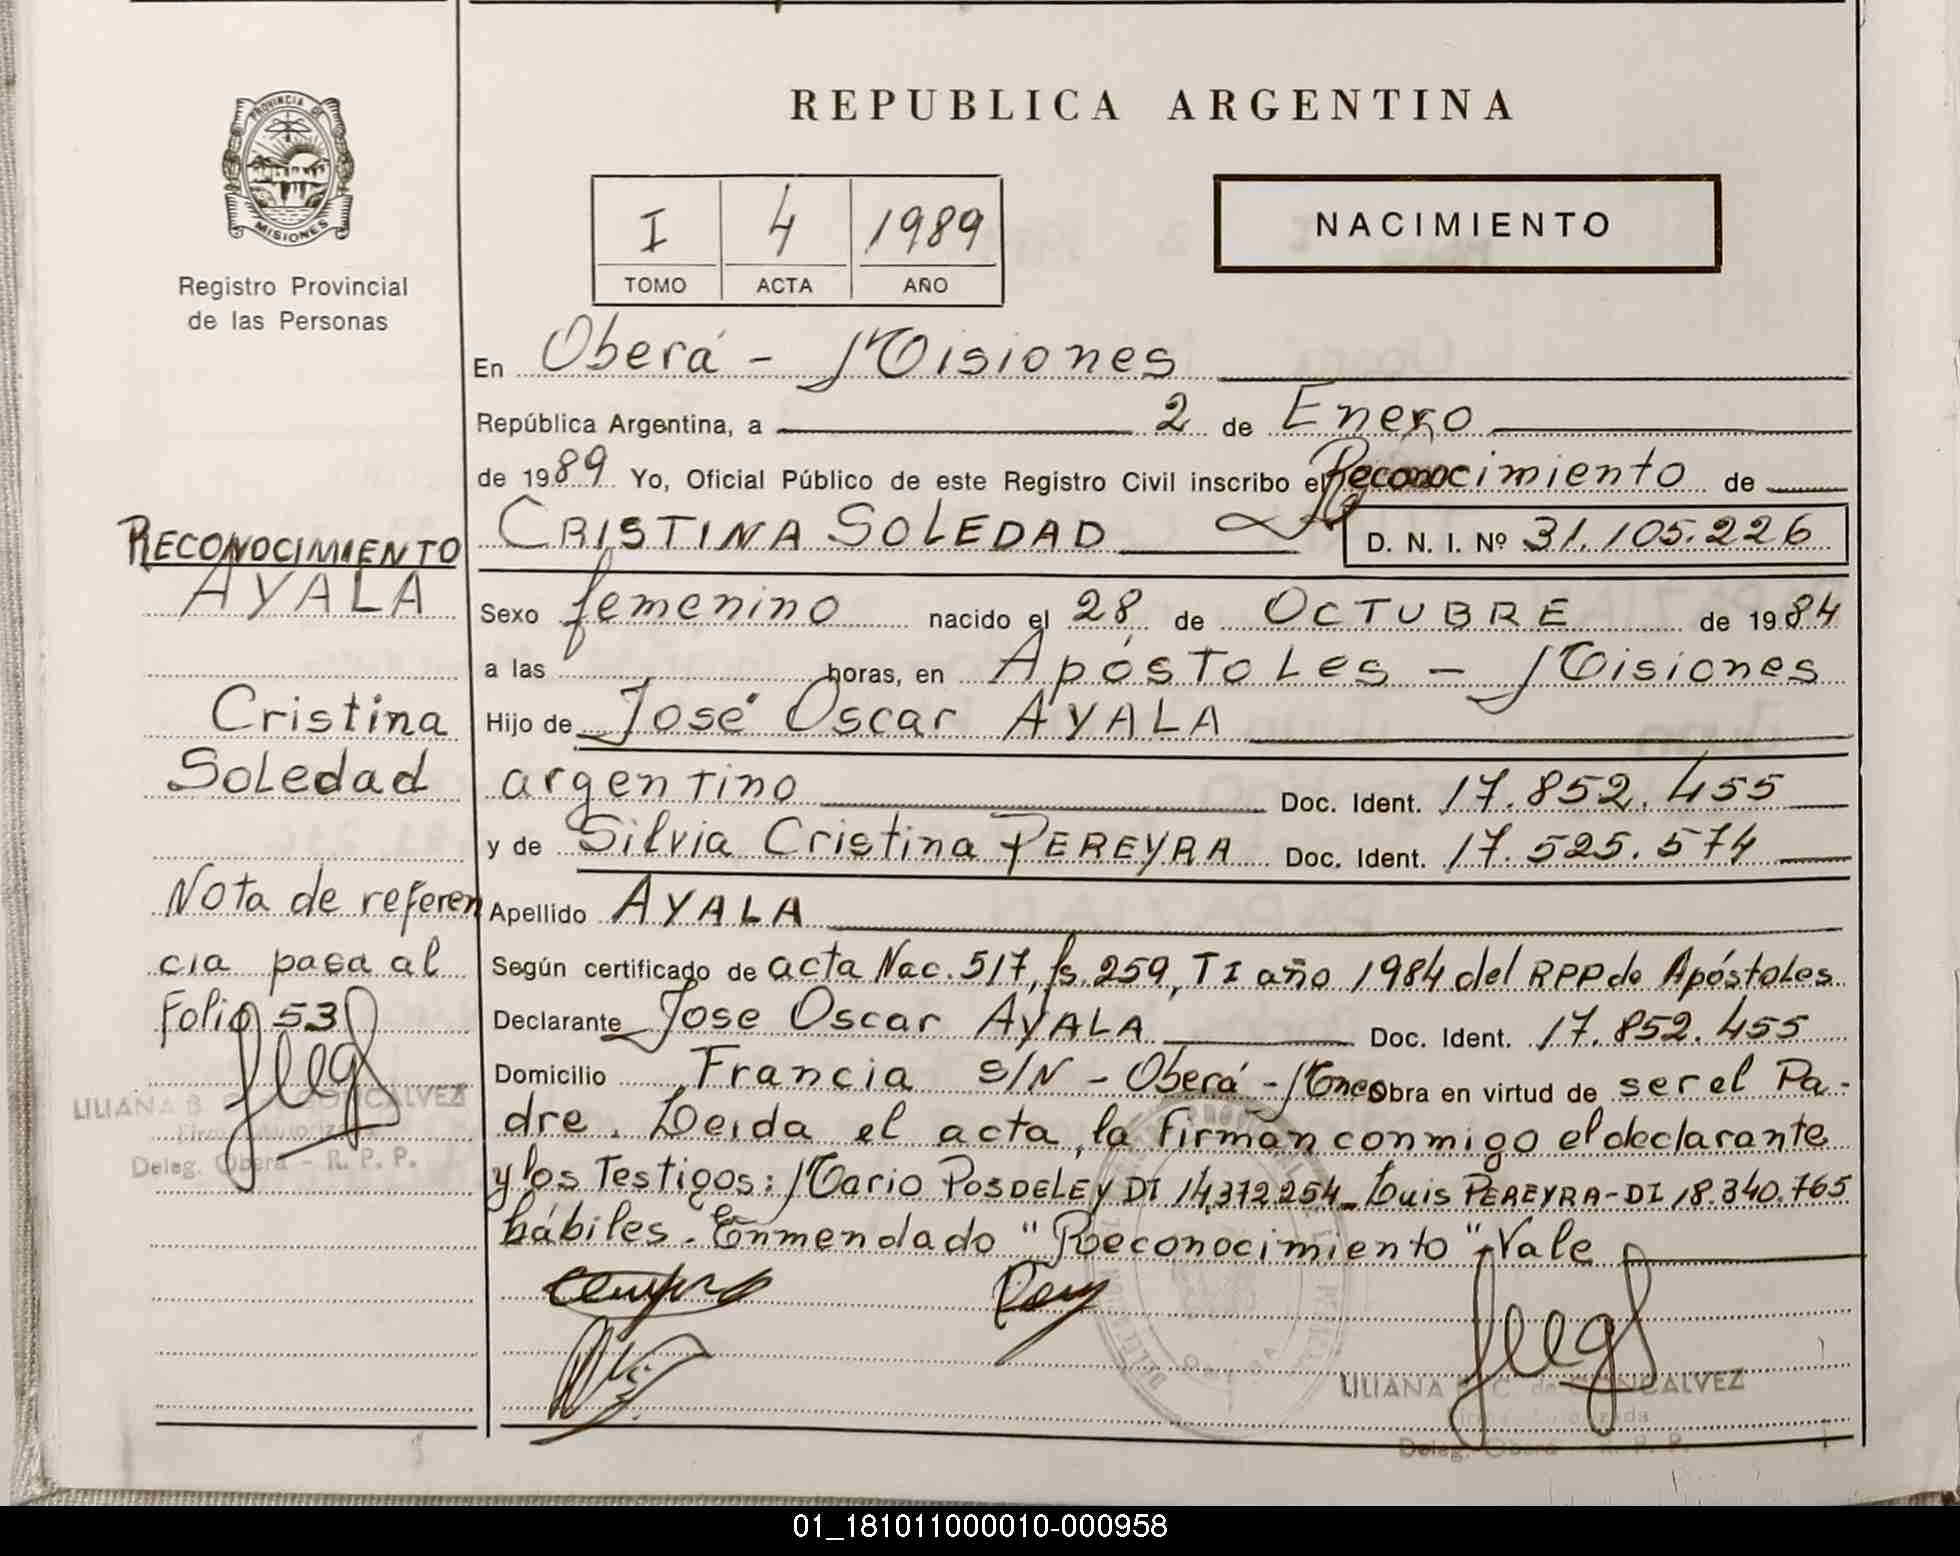 PROVINCIA DE
MISIONES
Registro Provincial
de las Personas
REPUBLICA ARGENTINA
I 4 1989
TOMO ACTA AÑO
NACIMIENTO
En Oberá - Misiones
República Argentina, a 2 de Enero
de 1989 Yo, Oficial Público de este Registro Civil inscribo el Reconocimiento de
CRISTINA SOLEDAD D. N. I. Nº 31.105.226
Sexo femenino nacido el 28 de OCTUBRE de 1984
a las horas, en Apóstoles - Misiones
Hijo de José Oscar AYALA
argentino Doc. Ident. 17.852.455
y de Silvia Cristina PEREYRA Doc. Ident. 17.525.574
Apellido AYALA
Según certificado de acta Nac. 517, fs. 259, T I año 1984 del RPP de Apóstoles
Declarante Jose Oscar AYALA Doc. Ident. 17.852.455
Domicilio Francia S/N - Oberá - Mnes Obra en virtud de ser el Pa-
dre. Leida el acta, la firman conmigo el declarante
y los Testigos: Mario POSDELEY DI 14.372.254 - Luis PEREYRA - DI 18.340.765
hábiles. Enmendado "Reconocimiento" Vale
RECONOCIMIENTO
AYALA
Cristina
Soledad
Nota de referen
cia pasa al
Folio 53
LILIANA B. C. de GONCALVEZ
Firma Autorizada
Deleg. Oberá - R. P. P.
LILIANA B. C. de GONCALVEZ
Firma Autorizada
Deleg. Oberá - R. P. P.
01_181011000010-000958